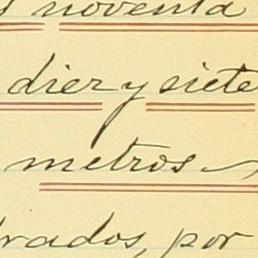 y noventa
diez y siete
metros
drados, por